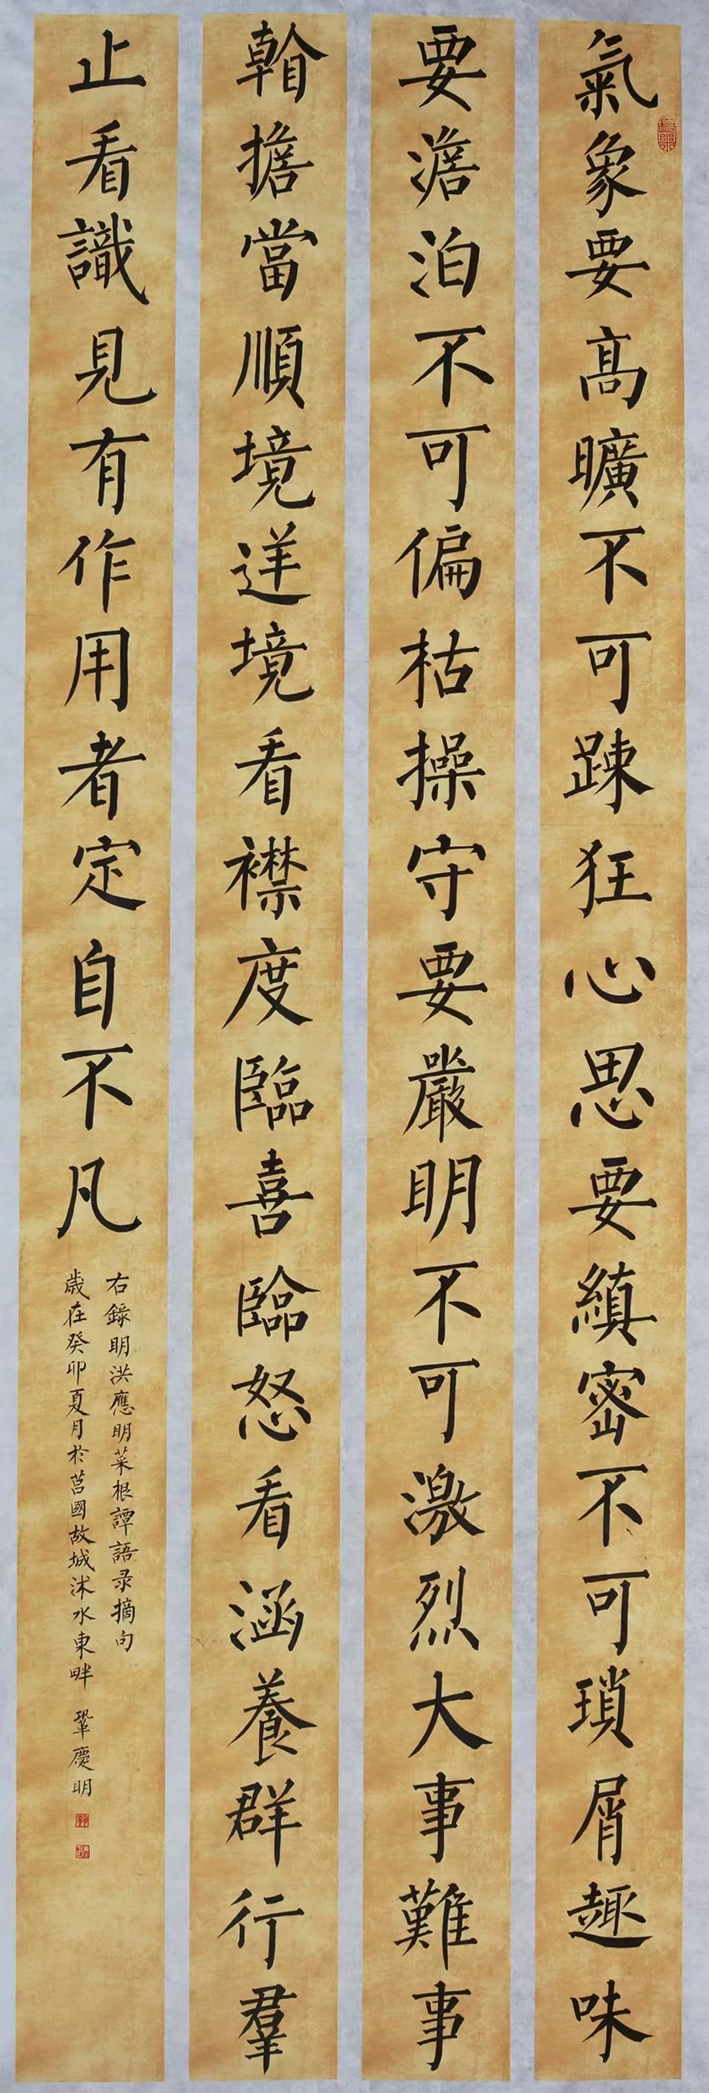 氣象要髙曠不可踈狂心思要縝密不可瑣屑趣味
要澹泊不可偏枯操守要嚴明不可激烈大事難事
擔當順境逆境看襟度臨喜臨怒看涵養群行羣
止看識見有作用者定自不凡
右錄明洪應明菜根譚語录摘句
歲在癸卯夏月於莒國故城沭水東畔 鞏慶明